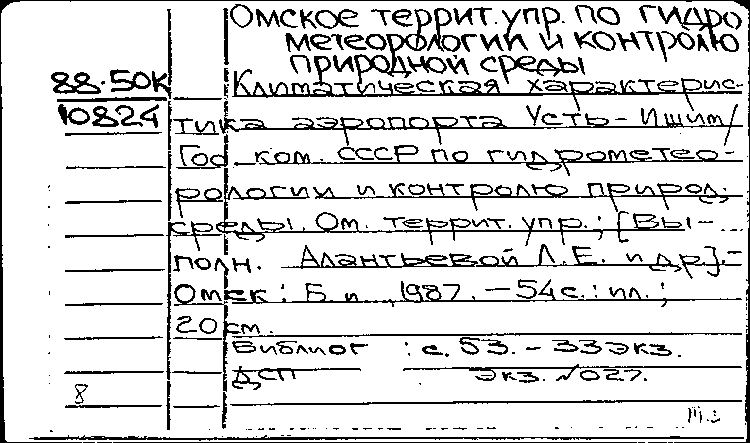 Омское террит. упр. по гидро
метеорологии и контролю
природной среды
88-50К
10824
Климатическая характерис-
тика аэропорта Усть-Ишим /
Гос. ком. СССР по гидрометео-
рологии и контролю природ.
среды. Ом. террит. упр.; [Вы-
полн. Алантьевой Л.Е. и др]. -
Омск : Б. и., 1987. - 54 с. : ил. ;
20 см.
Библиог : с. 53. - 33 экз.
ДСП экз. №027.
8